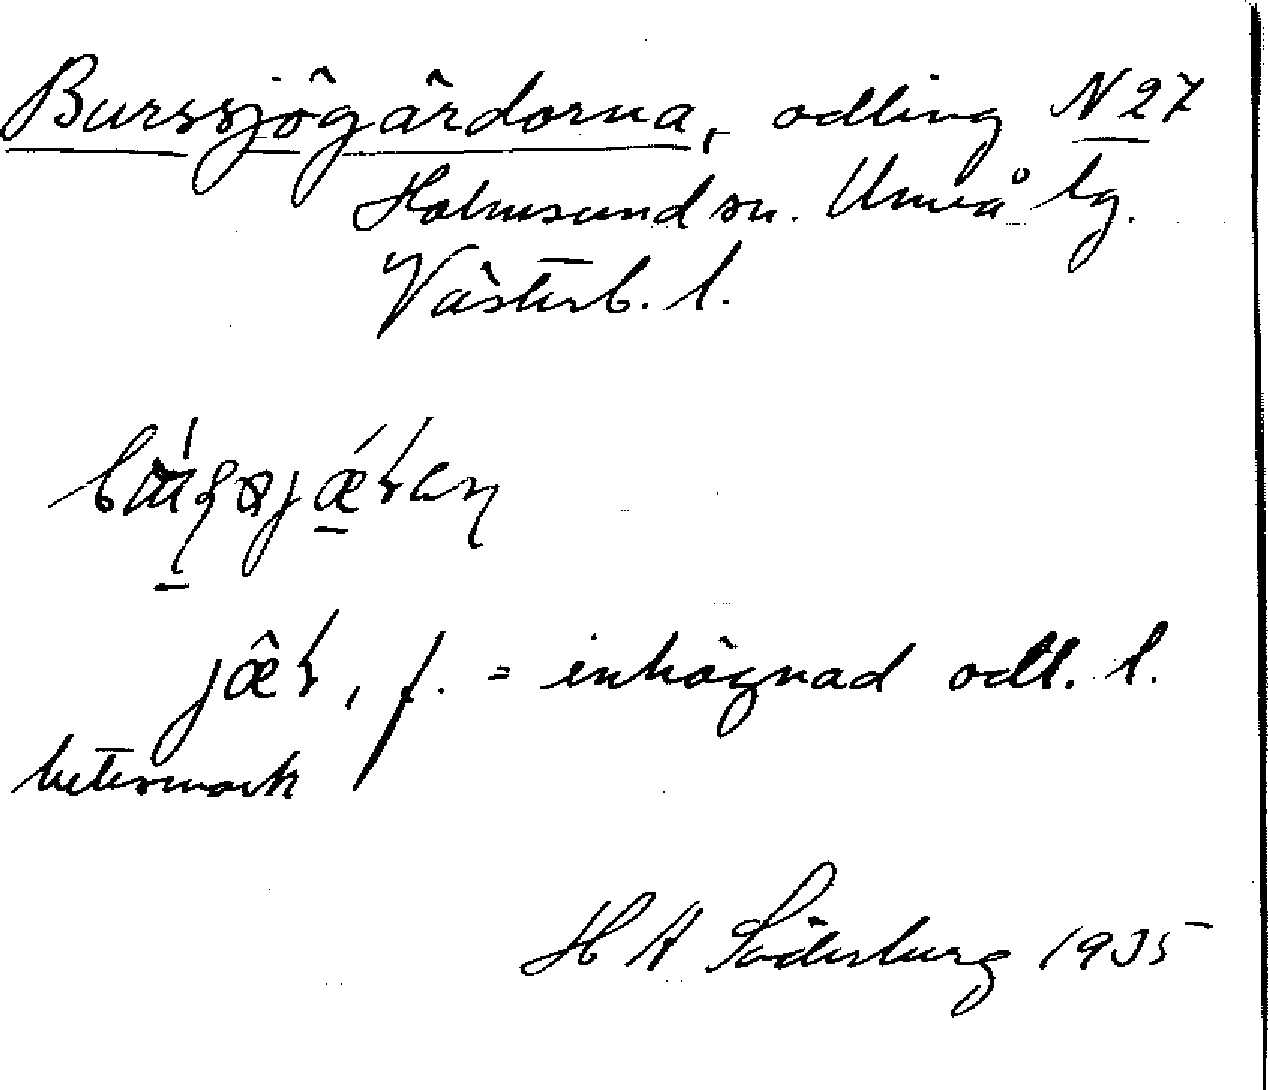 Burssjögärdorna, odling N 27
Holmsund sn. Umeå lg.
Västerb. l.
jæ̂ɽ, f. = inhägnad odl. l.
betesmark
H A Söderberg 1935